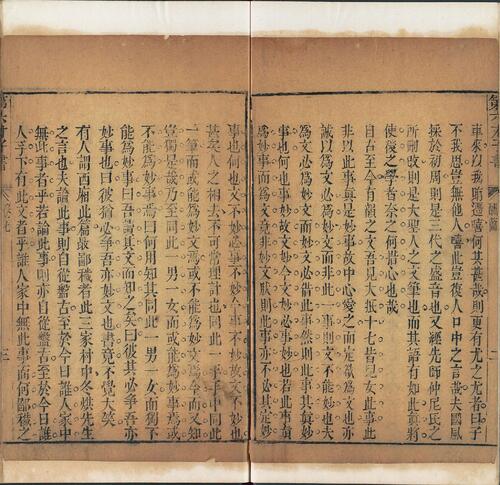 第六才子書
酬簡
二
車來以我賄遷嘻何其甚哉則更有尤之尤者曰子
不我思豈無他人嘻此豈復人口中之言哉夫國風
採於初周則是三代之盛音也又經先師仲尼氏之
所刪改則是大聖人之文筆也而其語有如此真將
使後之學者奈之何措心也哉
自古至今有韻之文吾見大抵十七皆兒女此事此
非以此事真是妙事故中心愛之而定欲為文也亦
誠以為文必為妙文而非此一事則文不能妙也夫
為文必為妙文而妙文必借此事然則此事其真妙
事也何也事妙故文妙今文妙必事妙也若此事真
為妙事而為文竟非妙文然則此事亦不必其定妙
事也何也文不妙必事不妙今事不妙故文不妙也
甚矣人之相去不可常理計也同此一手手中同此
一筆而或能為妙文焉或不能為妙文焉今而又知
豈獨是哉乃至同此一男一女而或能為妙事焉或
不能為妙事焉曰何用知其同此一男一女而獨不
能為妙事曰吾讀其文而知之矣曰彼其必爭吾亦
妙事也曰彼猶必爭吾亦妙文也書竟不覺大笑
有人謂西廂此篇最鄙穢者此三家村中冬烘先生
之言也夫論此事則自從盤古至於今日誰人家中
無此事者乎若論此事則亦自從盤古至於今日誰
人手下有此文者乎誰人家中無此事而何鄙穢之
第六才子書
卷七
三